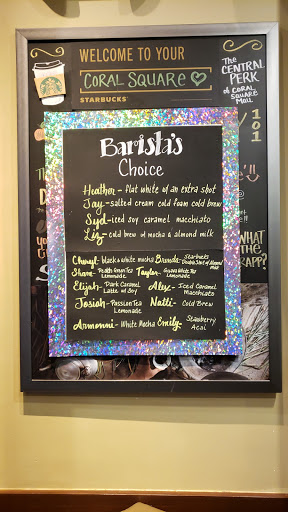 WELCOME TO YOUR
CORAL SQUARE
STARBUCKS
The
CENTRAL
PERK
of CORAL
SQUARE
MALL
101
Barista's
Choice
Heather - flat white w/ an extra shot
Jay - salted cream cold foam cold brew
Syd - iced soy caramel macchiato
Liz - cold brew w/ mocha & almond milk
Cheryl - black & white mocha
Brenda - Starbucks Doubleshot w/ Almond Milk
Shane - Peach Green Tea Lemonade
Taylor - Guava White Tea Lemonade
Elijah - Dark Caramel Latte w/ Soy
Alex - Iced Caramel Macchiato
Josiah - Passion Tea Lemonade
Natti - Cold Brew
Armonni - White Mocha
Emily - Strawberry Acai
WHAT
THE
FRAPP?